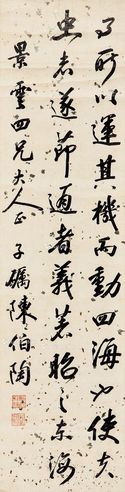 了所以運其機而動四海也使夫
忠孝遂節通者義著昭之東海
景雲四兄大人正 子礪陳伯陶